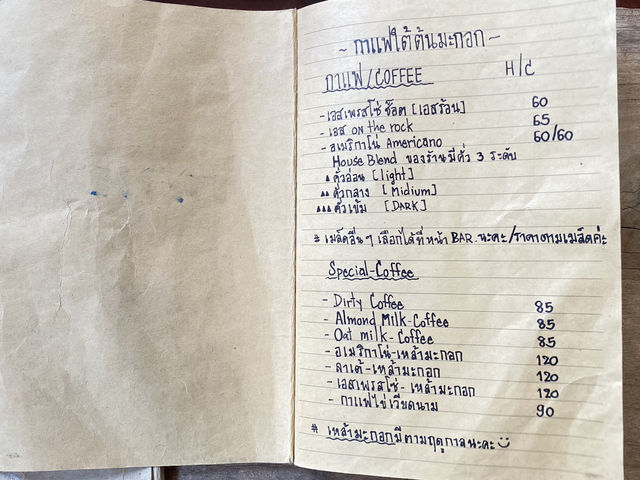 ~ กาแฟใต้ต้นมะกอก ~
กาแฟ/COFFEE H/C
- เอสเพรสโซ่ ช็อต [เอสร้อน] 60
- เอส on the rock 65
- อเมริกาโน่ Americano 50/60
House Blend ของร้านมีคั่ว 3 ระดับ
▲ คั่วอ่อน [light]
▲▲ คั่วกลาง [Midium]
▲▲▲ คั่วเข้ม [DARK]
# เมล็ดอื่นๆ เลือกได้ที่หน้า BAR นะคะ/ราคาตามเมล็ดค่ะ
Special-Coffee
- Dirty Coffee 85
- Almond Milk-Coffee 85
- Oat milk-Coffee 85
- อเมริกาโน่-เหล้ามะกอก 120
- ลาเต้-เหล้ามะกอก 120
- เอสเพรสโซ่-เหล้ามะกอก 120
- กาแฟไข่เวียดนาม 90
# เหล้ามะกอกมีตามฤดูกาลนะคะ